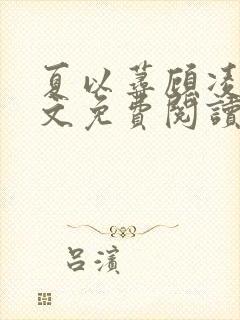 夏以蕁顧凌
文免費閱讀
呂濱